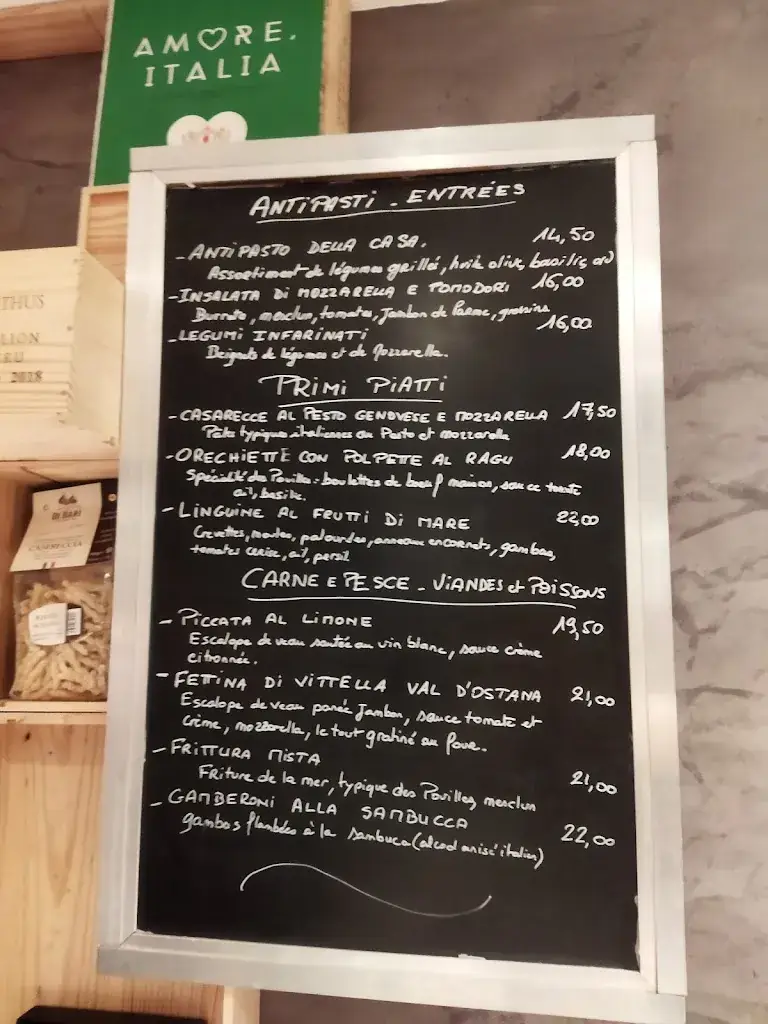 AMORE.
ITALIA
THUS
LION
CRU
2018
CASARECCIA
ANTIPASTI - ENTRÉES
- ANTIPASTO DELLA CASA. 14,50
Assortiment de légumes grillé, huile olive, basilic, ail
- INSALATA DI MOZZARELLA E POMODORI 16,00
Burrata, mesclun, tomates, Jambon de Parme, gressins
- LEGUMI INFARINATI 16,00
Beignets de légumes et de Mozzarella.
PRIMI PIATTI
- CASARECCE AL PESTO GENOVESE E MOZZARELLA 17,50
Pates typiques italiennes au Pesto et mozzarella
- ORECHIETTE CON POLPETTE AL RAGU 18,00
Spécialité des Pouilles: boulettes de boeuf maison, sauce tomate
ail, basilic.
- LINGUINE AL FRUTTI DI MARE 22,00
Crevettes, moules, palourdes, anneaux encornets, gambas,
tomates cerise, ail, persil
CARNE E PESCE - VIANDES et POISSONS
- PICCATA AL LIMONE 19,50
Escalope de veau sautée au vin blanc, sauce crème
citronnée.
- FETTINA DI VITTELLA VAL D'OSTANA 21,00
Escalope de veau panée Jambon, sauce tomate et
crème, mozzarella, le tout gratiné au four.
- FRITTURA MISTA 21,00
Friture de la mer, typique des Pouilles, mesclun
- GAMBERONI ALLA SAMBUCCA 22,00
gambas flambées à la sambuca (alcool anisé italien)